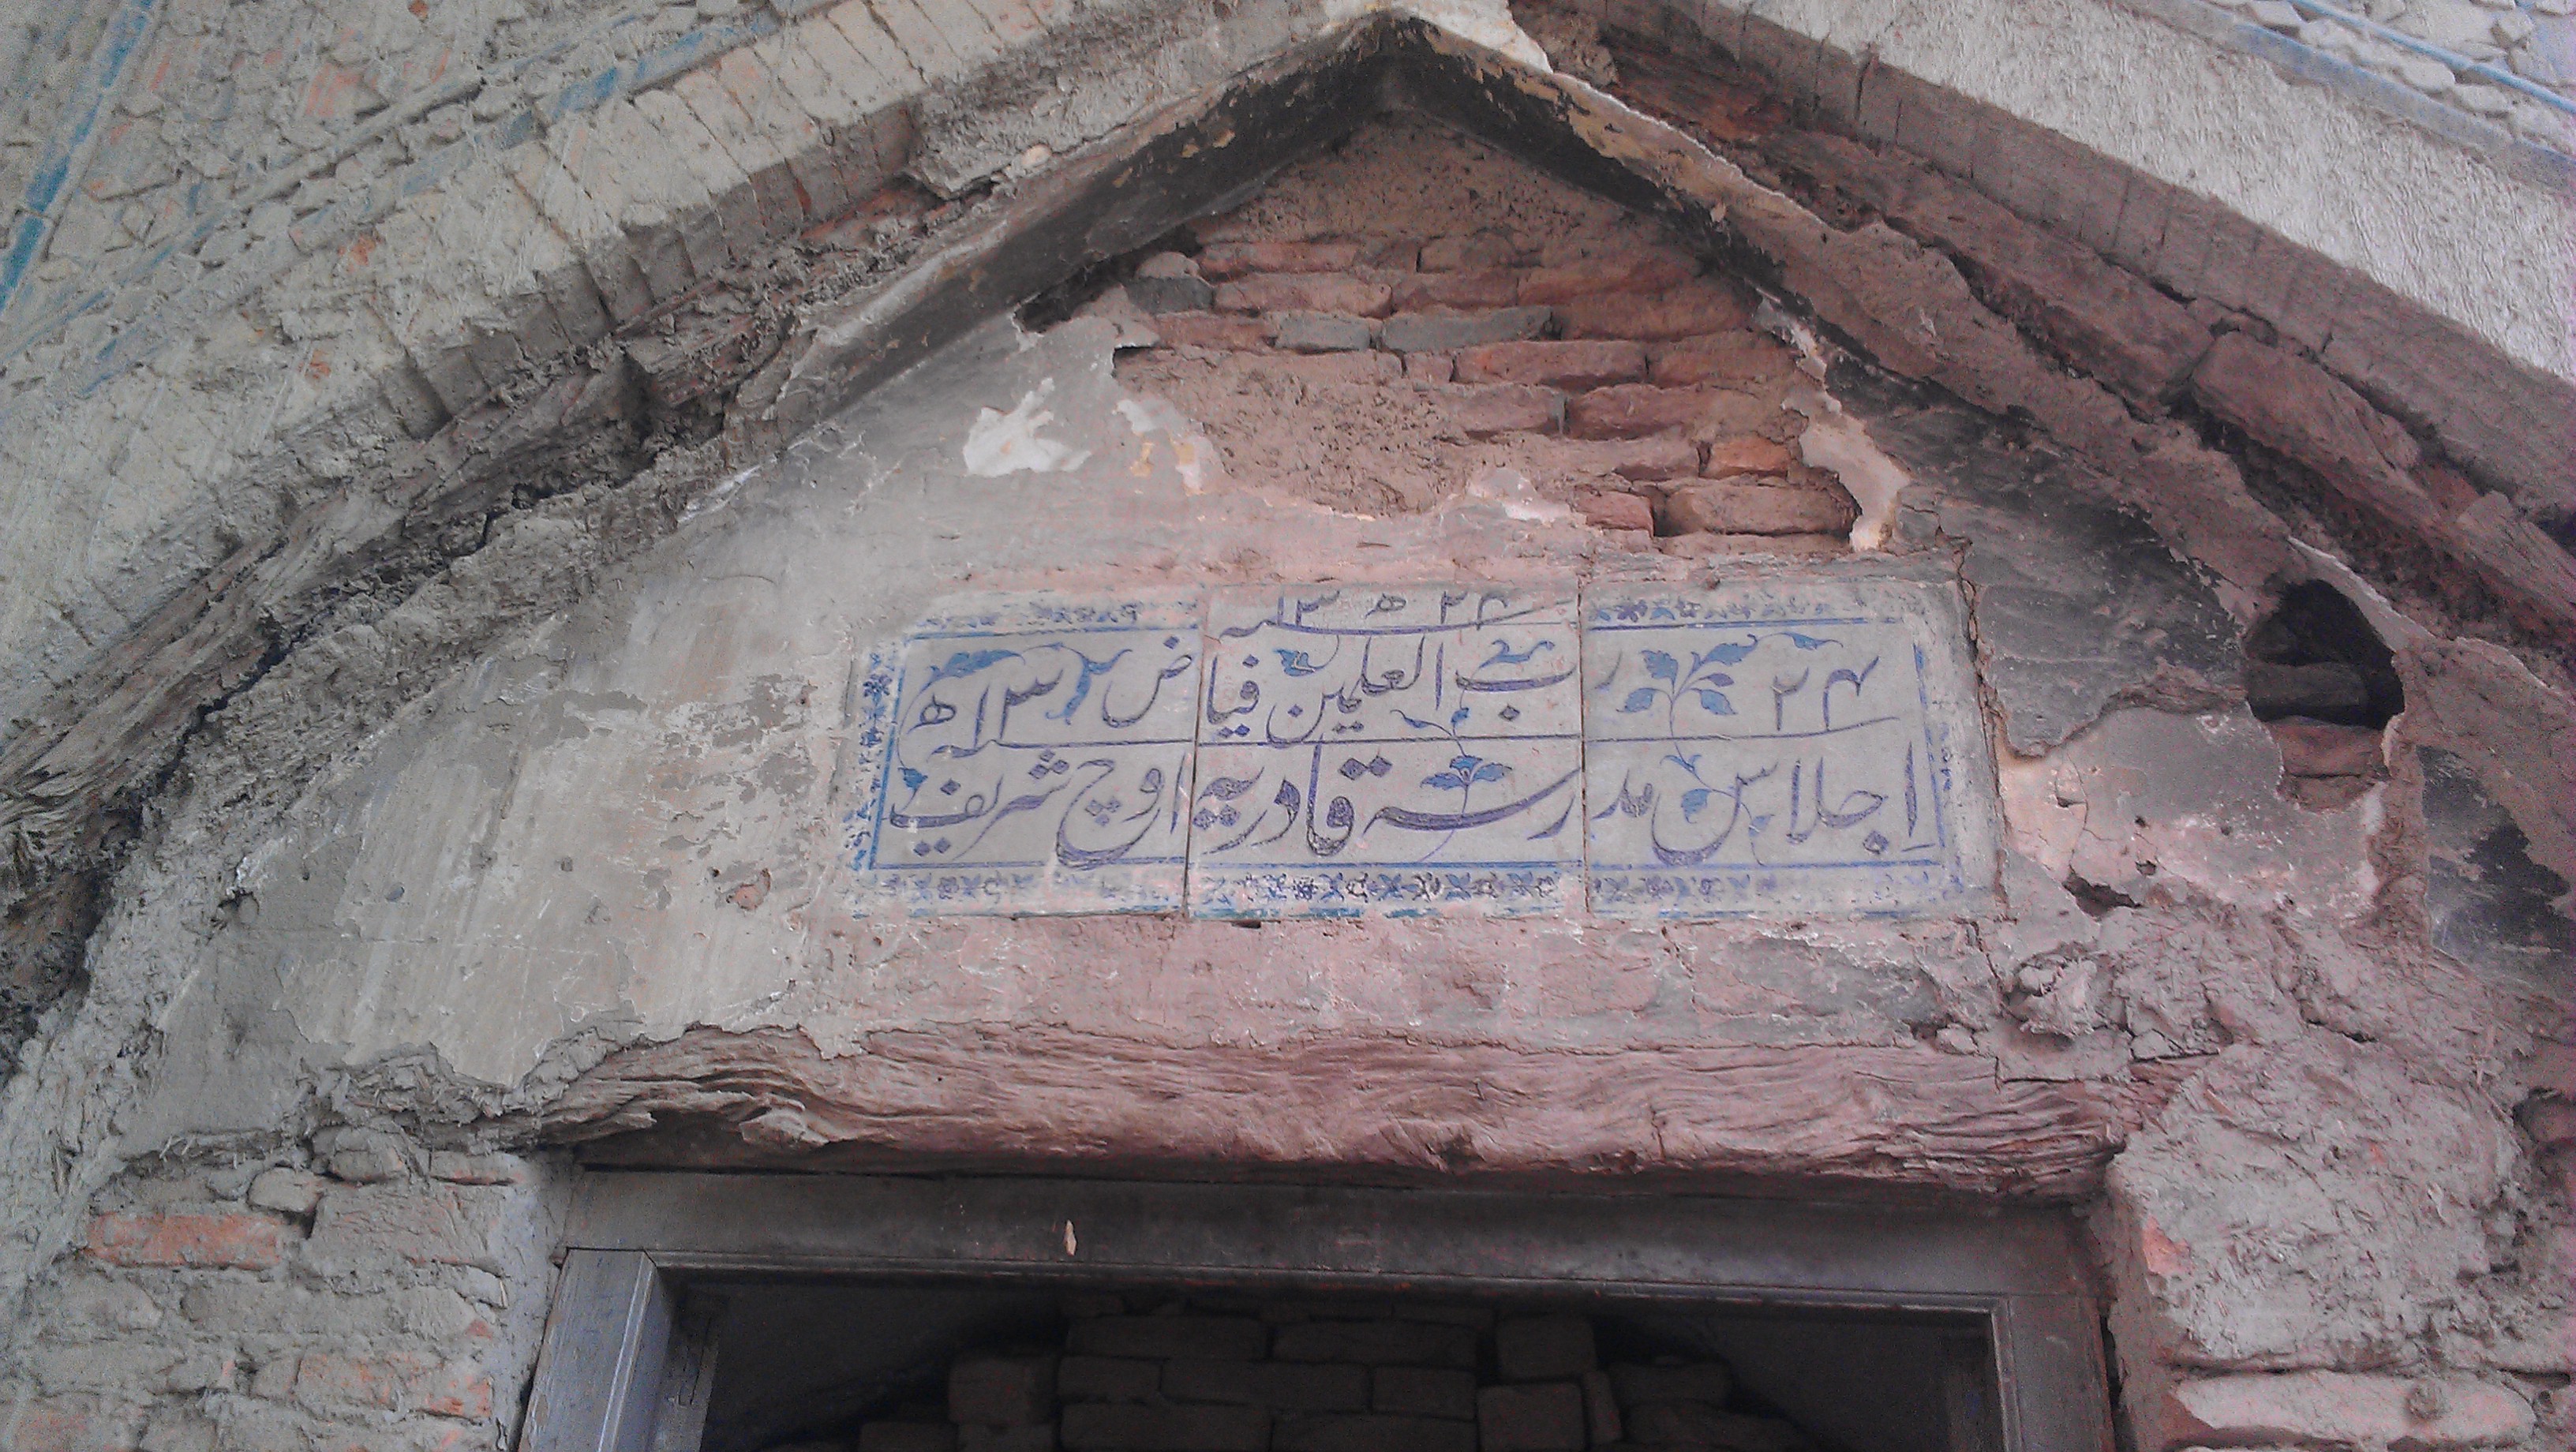 ۱۳ ھ ۲۴
۲۴ رب العلمین فیاض ۱۳ھ
اجلاس مدرسہ قادریہ اوچ شریف